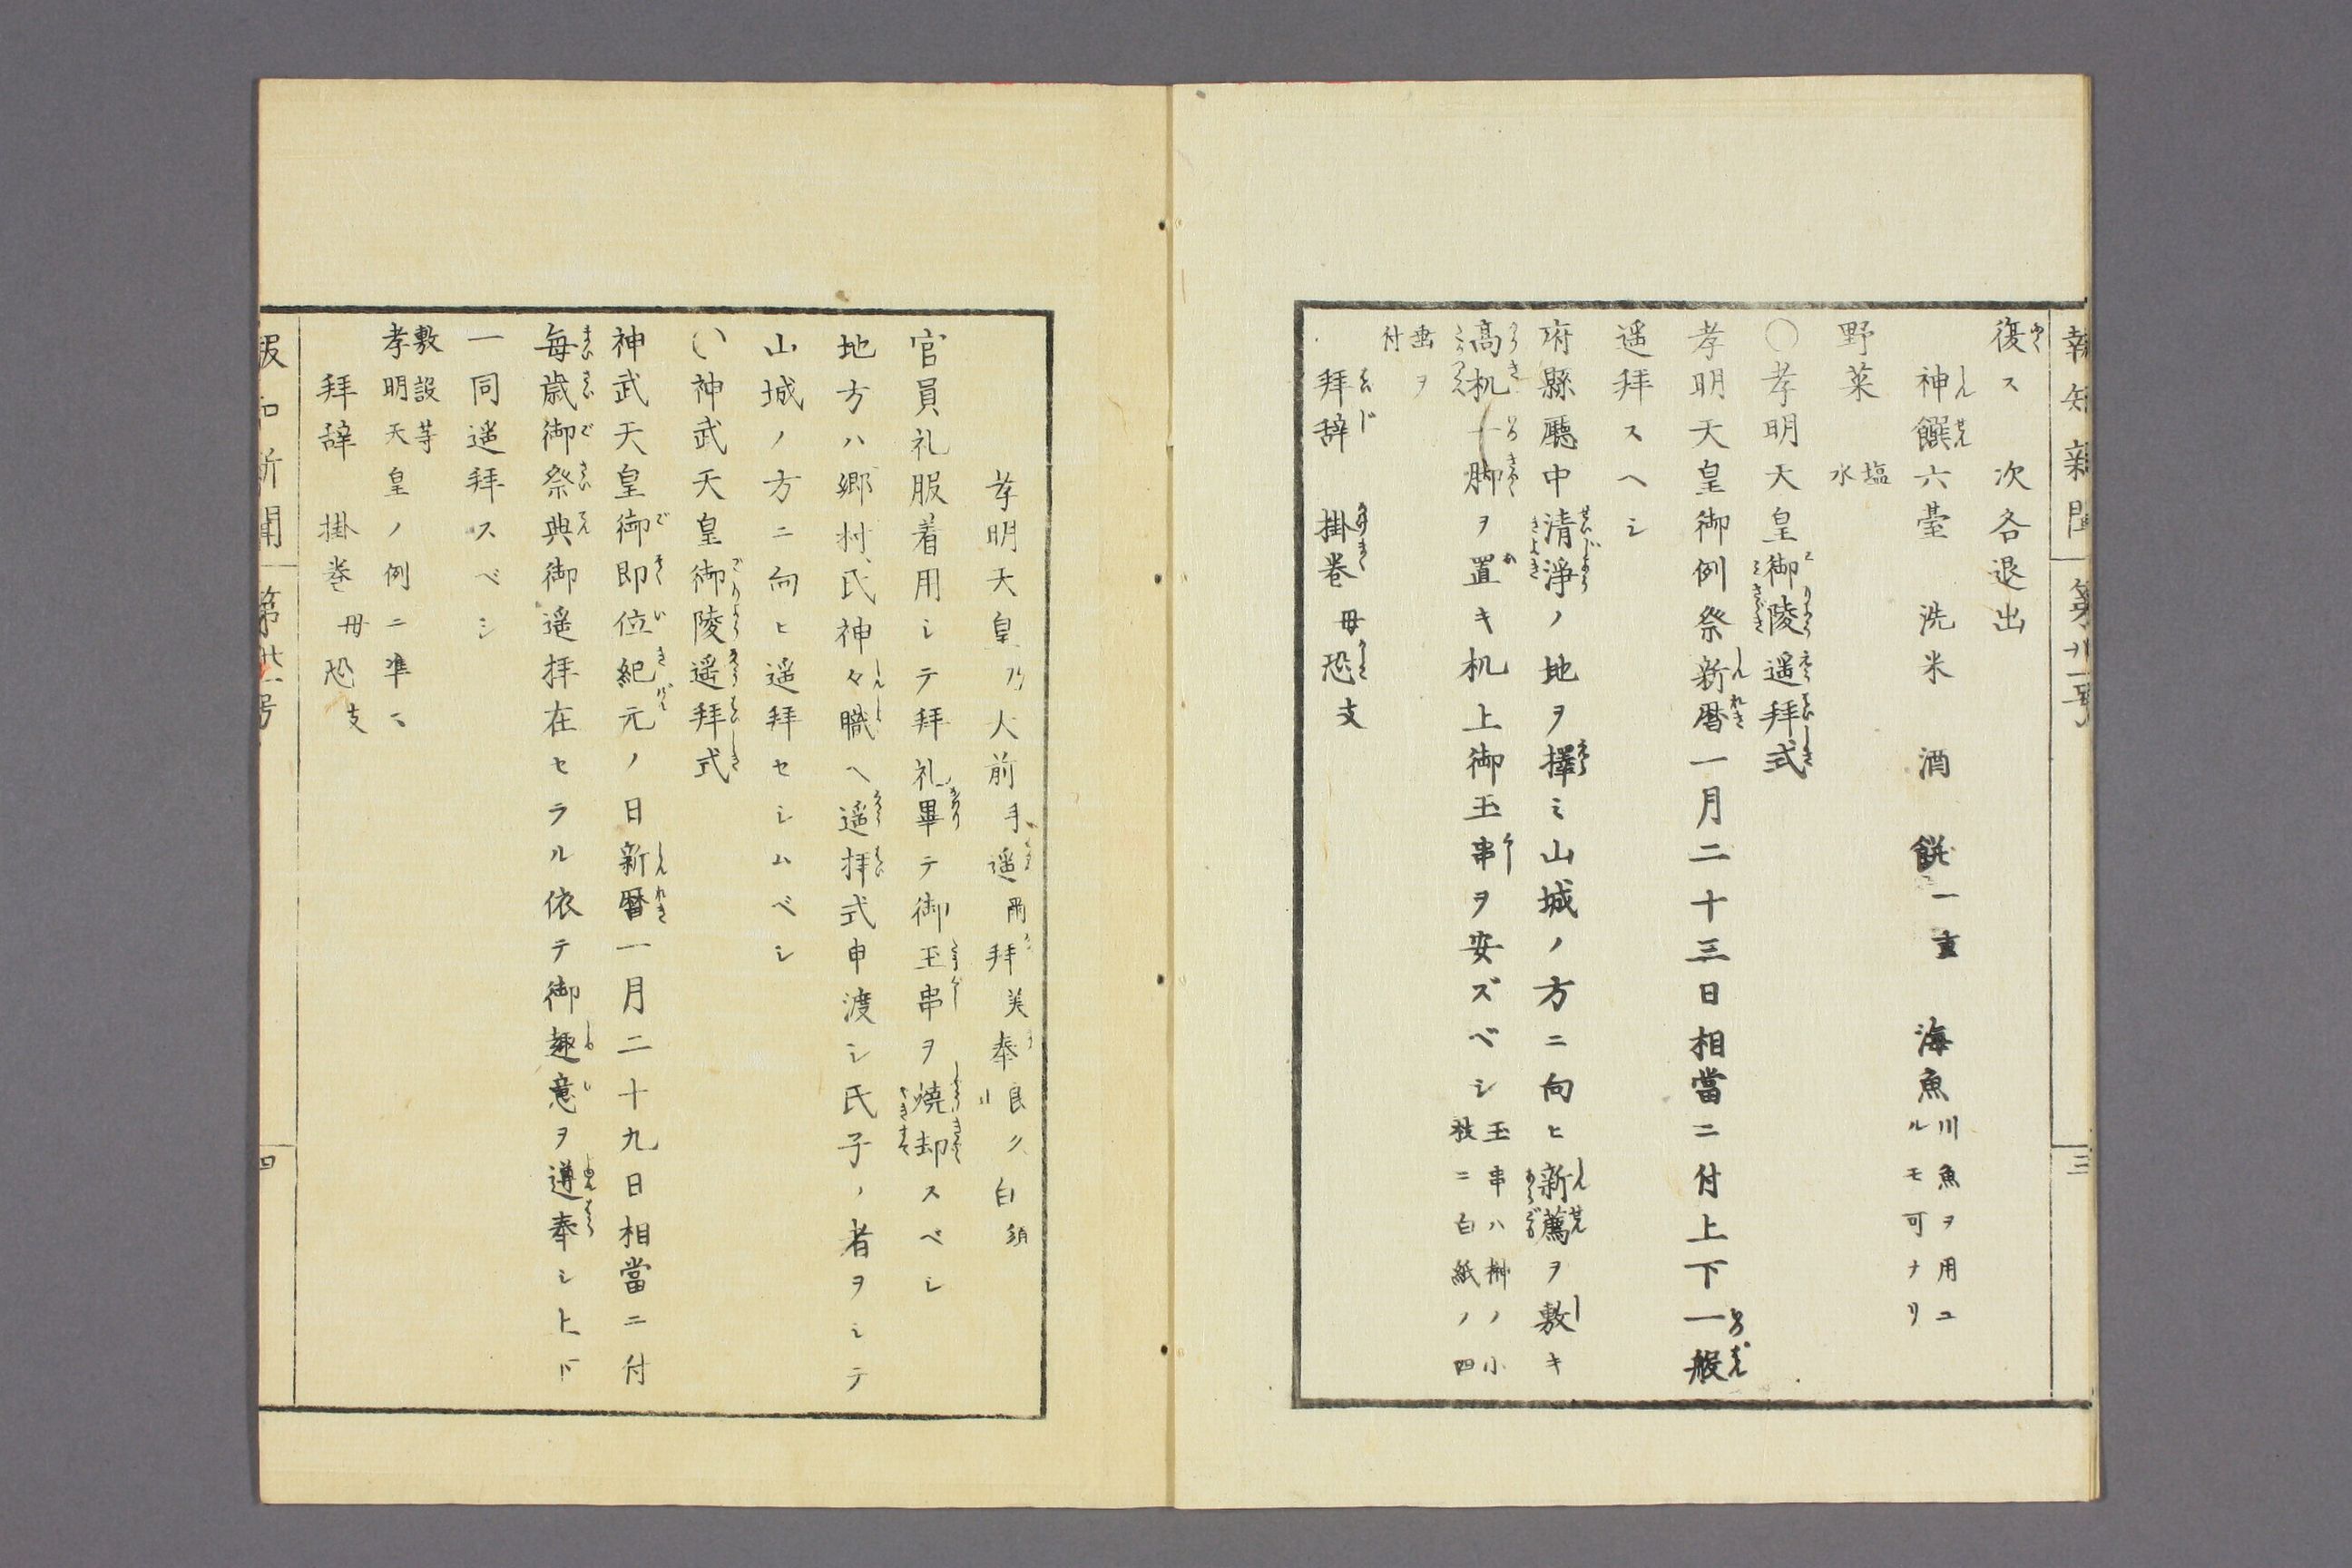 復ス　次各退出
神饌六臺　洗米　酒　餅一重　海魚川魚ヲ用ユルモ可ナリ
野菜　塩水
〇孝明天皇御陵遥拜式
孝明天皇御例祭新暦一月二十三日相當ニ付上下一般
遥拜スヘシ
府縣廳中清淨ノ地ヲ擇ミ山城ノ方ニ向ヒ新薦ヲ敷キ
高机一脚ヲ置キ机上御玉串ヲ安ズベシ玉串ハ榊ノ小枝ニ白紙ノ四
垂ヲ付
拜辞　掛巻毋恐支
孝明天皇乃大前手遥爾拜美奉良久白須
官員礼服着用シテ拜礼畢テ御玉串ヲ燒却スベシ
地方ハ郷村氏神々職ヘ遥拜式申渡シ氏子ノ者ヲシテ
山城ノ方ニ向ヒ遥拜セシムベシ
〇神武天皇御陵遥拜式
神武天皇御即位紀元ノ日新暦一月二十九日相當ニ付
毎歳御祭典御遥拜在セラル依テ御趣意ヲ遵奉シ上下
一同遥拜スベシ
敷設等
孝明天皇ノ例ニ準ス
拜辞　掛巻毋恐支
報知新聞　第廿一号　三
報知新聞　第廿一号　四